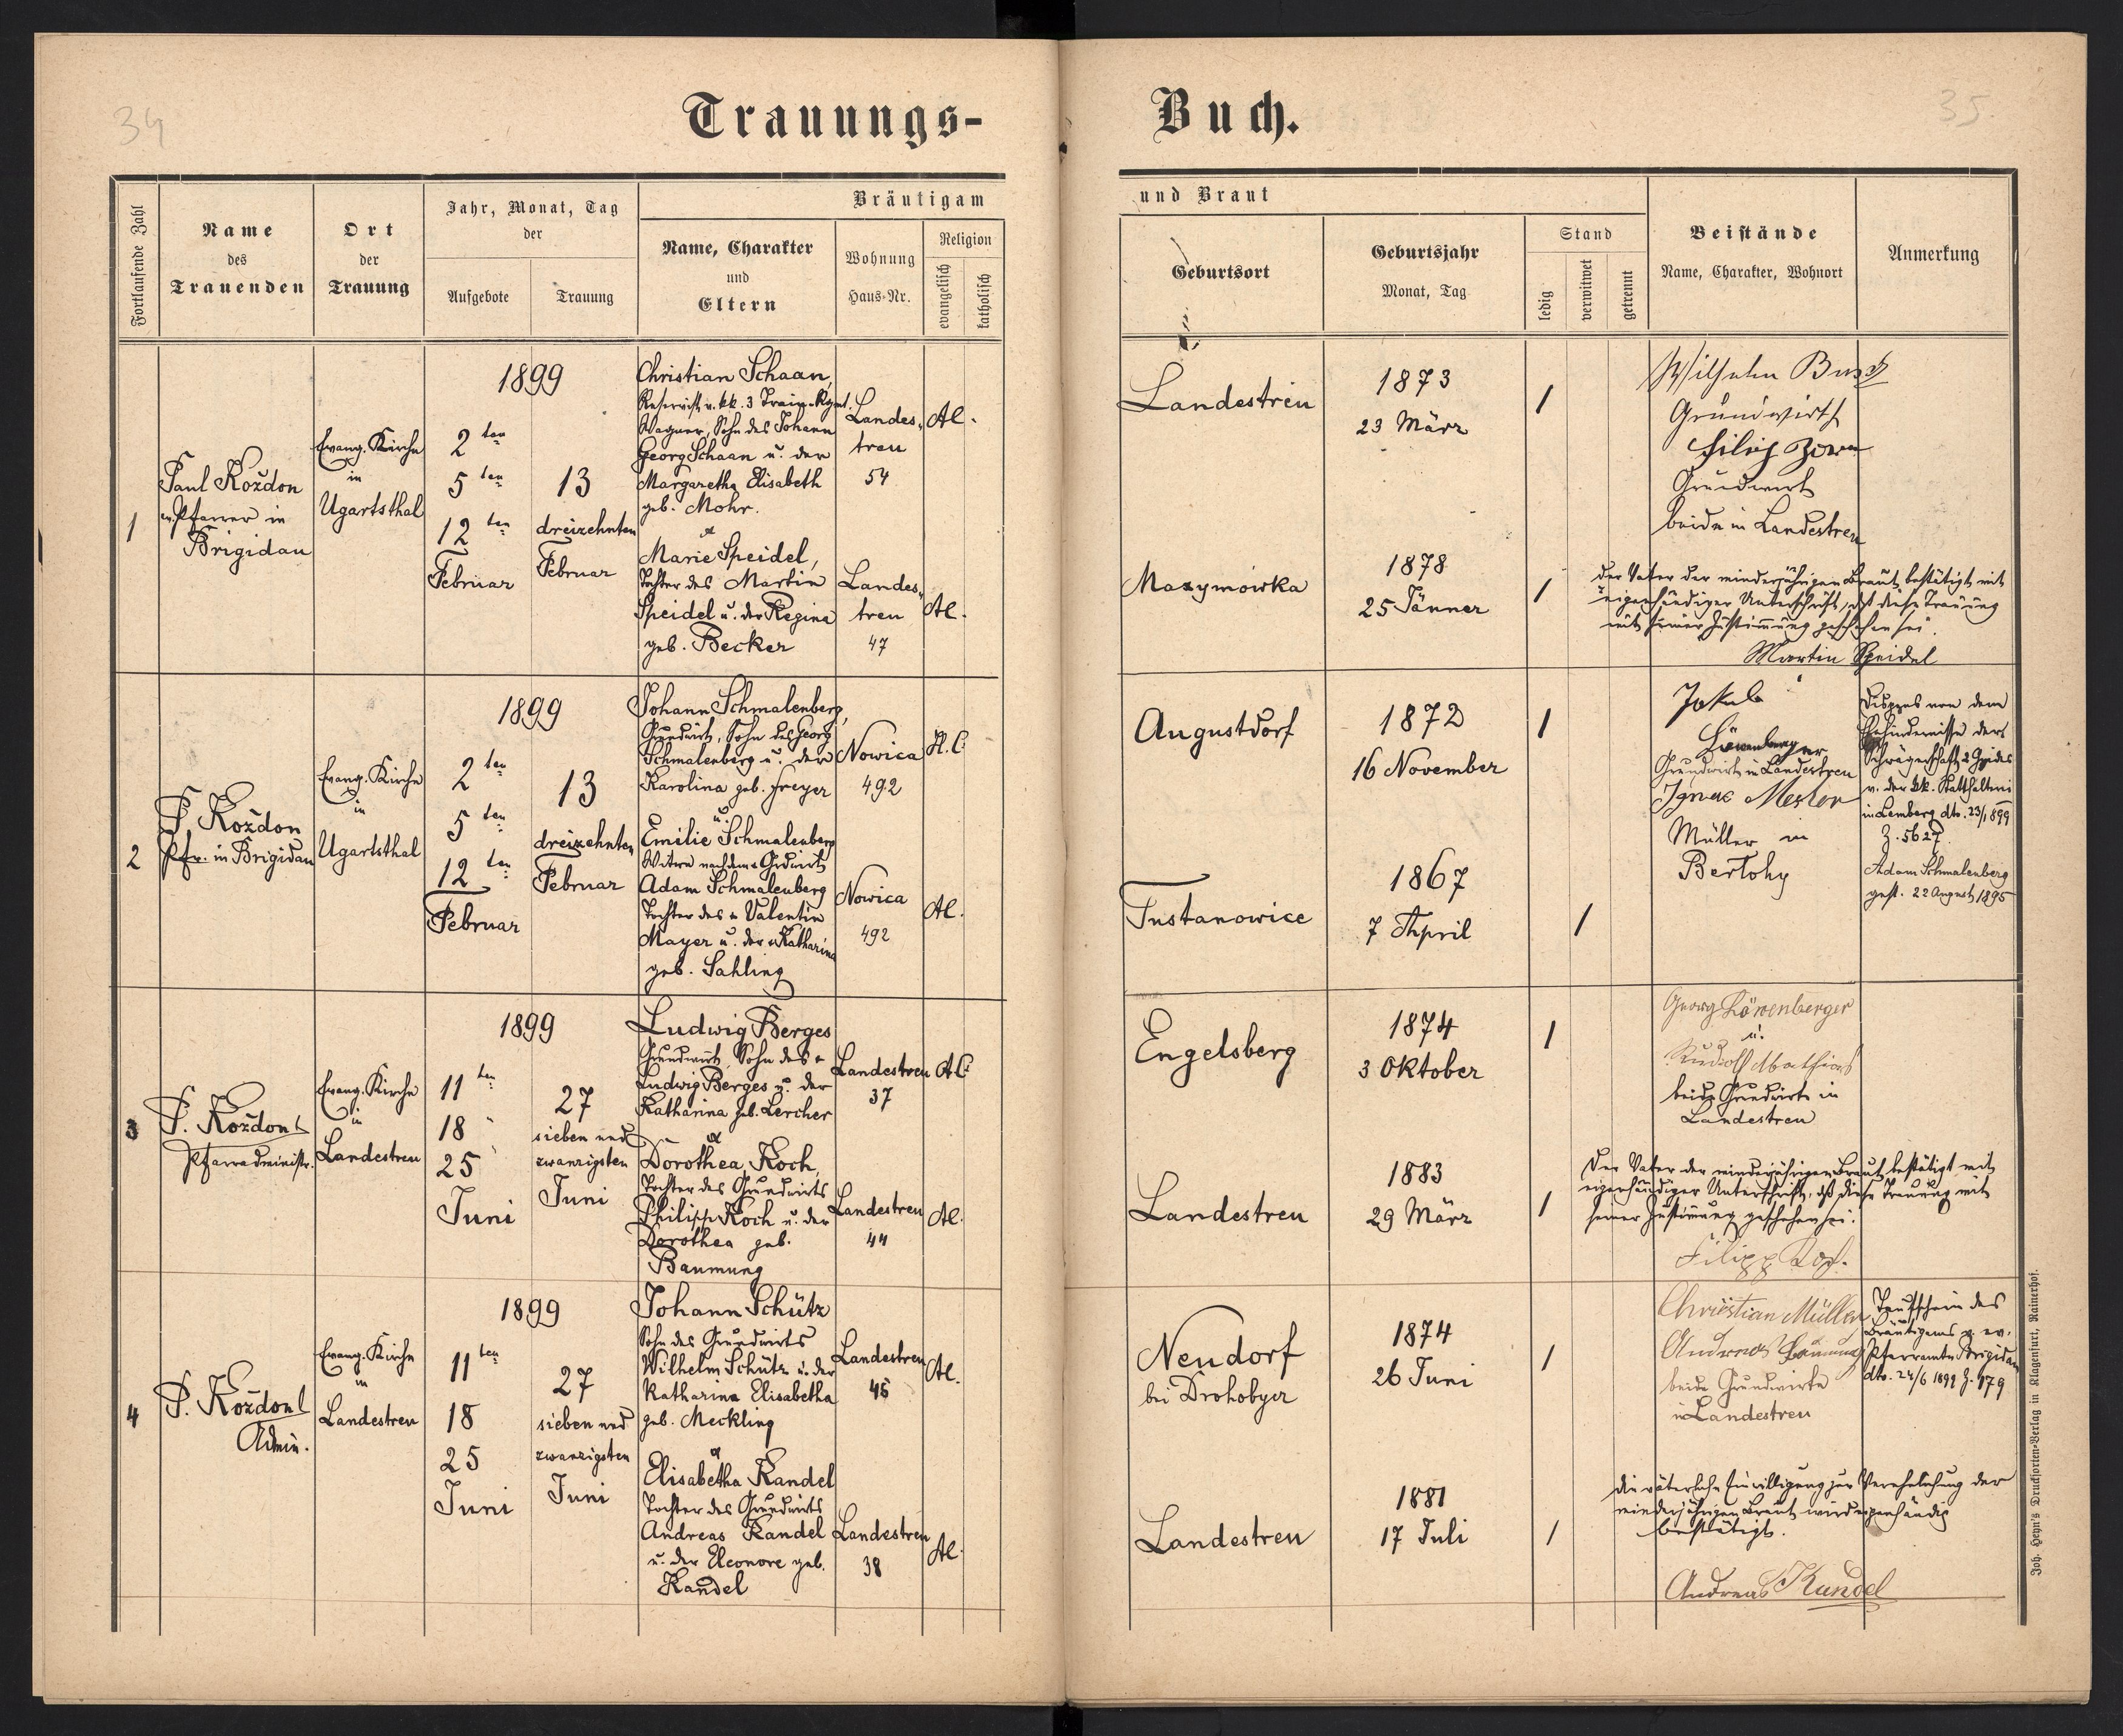 34
35
Trauungs-
Buch.
Fortlaufende Zahl
Name
des
Trauenden
Ort
der
Trauung
Jahr, Monat, Tag
der
Aufgebote
Trauung
Bräutigam
Name, Charakter
und
Eltern
Wohnung
Haus-Nr.
Religion
evangelisch
katholisch
und Braut
Geburtsort
Geburtsjahr
Monat, Tag
Stand
ledig
verwitwet
getrennt
Beistände
Name, Charakter, Wohnort
Anmerkung
1
Paul Kożdon
ev. Pfarrer in
Brigidau
Evang. Kirche
in
Ugartsthal
1899
2ten
5ten
12ten
Februar
13
dreizehnten
Februar
Christian Schaan,
Reservist v. kk. 3 Train-Rgmt.
Wagner, Sohn des Johann
Georg Schaan u. der
Margaretha Elisabeth
geb. Mohr.
Landes-
treu
54
Al.
Marie Speidel,
Tochter des Martin
Speidel u. der Regina
geb. Becker
Landes-
treu
47
Al.
Landestreu
1873
23 März
/
Wilhelm
Grundwirth
Grundwirt
beide in Landestreu
Mazymówka
1878
25 Jänner
/
Der Vater der minderjährigen Braut bestätigt mit
eigenhändiger Unterschrift, daß diese Trauung
mit seiner Zustimmung geschehen sei.
Martin Speidel
2
P. Kożdon
Pfr. in Brigidau
Evang. Kirche
in
Ugartsthal
1899
2ten
5ten
12ten
Februar
13
dreizehnten
Februar
Johann Schmalenberg,
Grundwirt, Sohn des Georg
Schmalenberg u. der
Karolina geb. Freyer
Nowica
492
H.C.
u.
Emilie Schmalenberg
Witwe nach dem + Grdwirt
Adam Schmalenberg
Tochter des + Valentin
Mayer u. der + Katharina
geb. Sahling
Nowica
492
Al.
Augustdorf
1872
16 November
/
Jakob
Löwenberger
Grundwirt in Landestreu
Ignac
Müller in
Dispens von dem
Ehehindernisse der
Schwägerschaft 2 Grades
v. der kk. Statthalterei
in Lemberg dto. 23/1 899
Z. 5627.
Adam Schmalenberg
gest. 22 August 1895
Tustanowice
1867
7 April
/
3
P. Kożdon
Pfarradministr.
Evang. Kirche
in
Landestreu
1899
11ten
18 "
25 "
Juni
27
sieben und
zwanzigsten
Juni
Ludwig Berges
Grundwirt, Sohn des +
Ludwig Berges u. der
Katharina geb. Lercher
Landestreu
37
A.C.
Dorothea Koch,
Tochter des Grundwirts
Philipp Koch u. der
Dorothea geb.
Baumung
Landestreu
44
Al.
Engelsberg
1874
3 Oktober
/
Georg Löwenberger
u.
Rudolf Mathias
beide Grundwirte in
Landestreu
Landestreu
1883
29 März
/
Der Vater der minderjährigen Braut bestätigt mit
eigenhändiger Unterschrift, daß diese Trauung mit
seiner Zustimmung geschehen sei.
Filipp Koch.
4
P. Kożdon
Admin.
Evang. Kirche
in
Landestreu
1899
11ten
18
25
Juni
27
sieben und
zwanzigsten
Juni
Johann Schütz
Sohn des Grundwirts
Wilhelm Schütz u. der
Katharina Elisabetha
geb. Meckling
Landestreu
45
Al.
Elisabetha Kandel
Tochter des Grundwirts
Andreas Kandel
u. der Eleonore geb.
Kandel
Landestreu
38
Al.
Neudorf
bei Drohobycz
1874
26 Juni
/
Christian Müller
Andreas Baumung
beide Grundwirte
in Landestreu
Taufschein des
Bräutigams v. ev.
Pfarramte Brigidau
dto. 24/6 1899 Z. 179
Landestreu
1881
17 Juli
/
Die väterliche Einwilligung zur Verehelichung der
minderjährigen Braut wird eigenhändig
bestätigt.
Andreas Kandel
Joh. Heyn's Drucksorten-Verlag in Klagenfurt, Rainerhof.